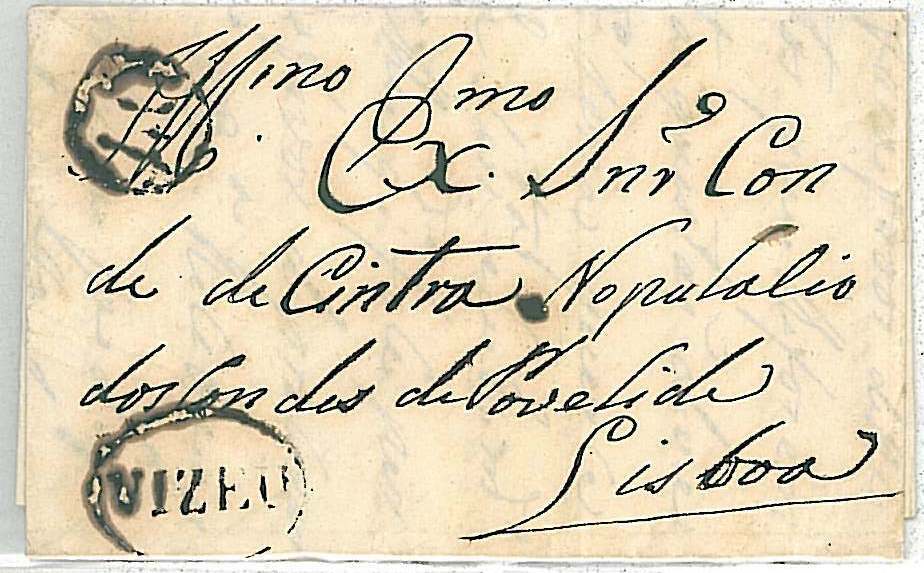 Illmo Exmo Snr Con
de de Cintra No putalio
dos Condes de Povelide
Lisboa
VIZEU